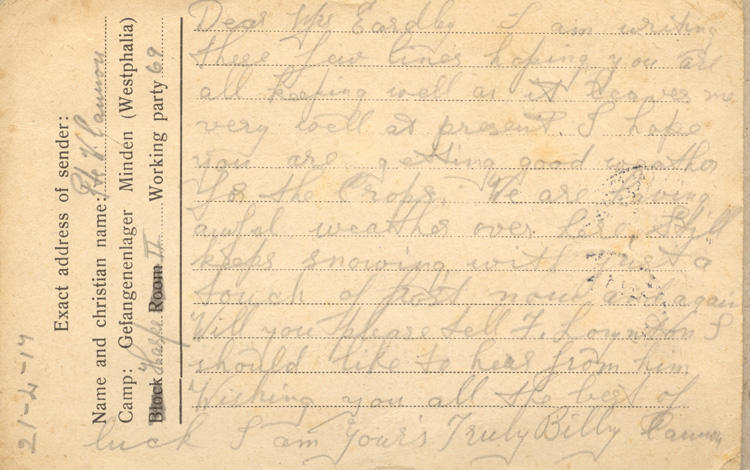 Exact address of sender:
Name and christian name: Pte W Cannon
Camp: Gefangenenlager Minden (Westphalia)
Block Room II Working party 69
21-4-17
Dear Mrs I am writing
these few lines hoping you are
all keeping well as it leaves me
very well at present. I hope
you are getting good weather
for the Crops. We are having
awful weather over here Still
keeps snowing with just a
touch of frost now and again
Will you please tell F. I
should like to hear from him
Wishing you all the best of
luck I am Your's Truly Billy Cannon